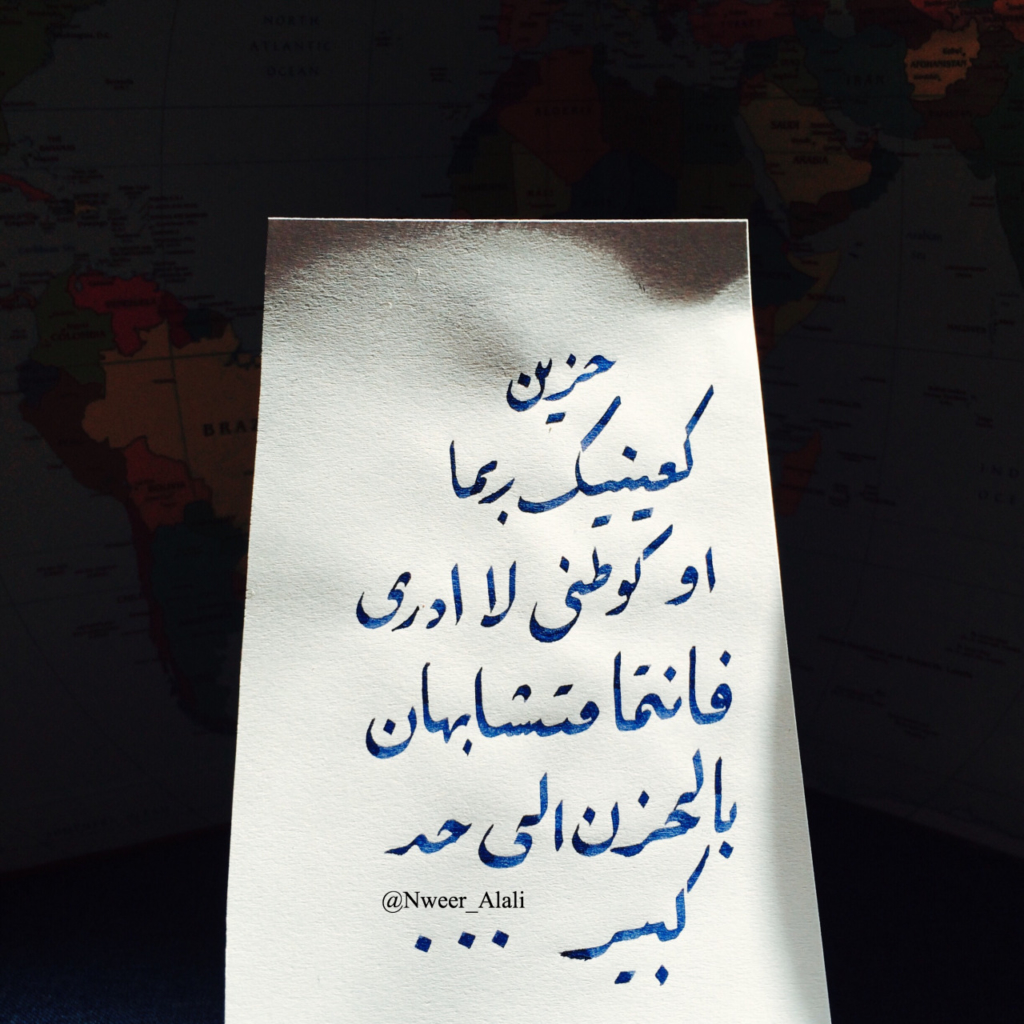 حزين
كعينيك ربما
او كوطني لا ادري
فانتما متشابهان
بالحزن الى حد
كبير
@Nweer_Alali
...
NORTH
ATLANTIC
OCEAN
BRAZ